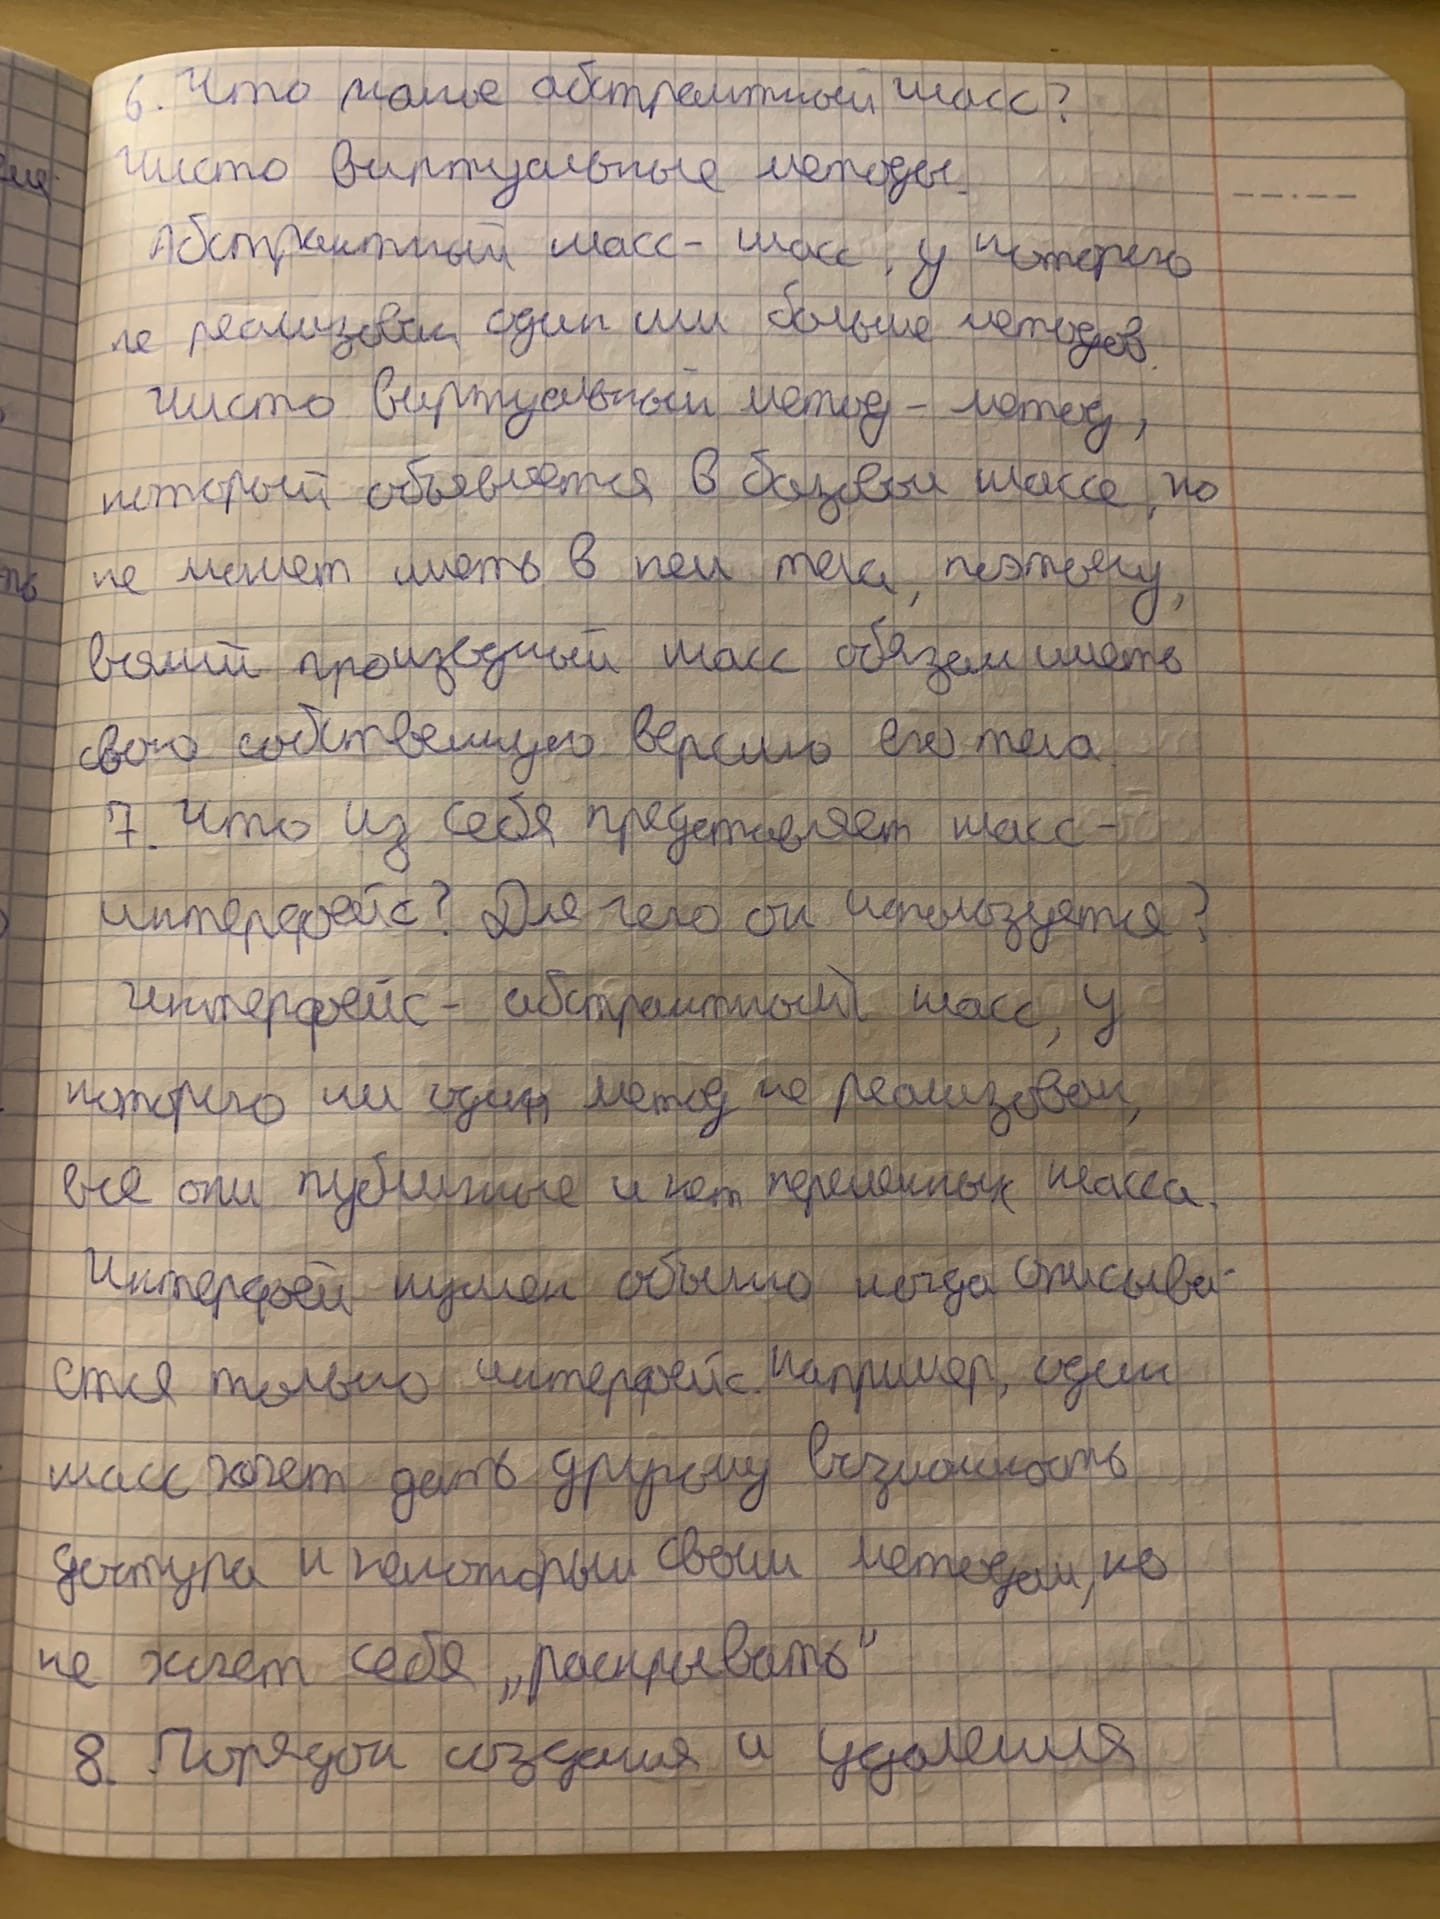 6. Что такое абстрактный класс?
Чисто виртуальные методы.
Абстрактный класс - класс, у которого
не реализован один или больше методов.
Чисто виртуальный метод - метод,
который объявляется в базовом классе, но
не может иметь в нем тела, поэтому,
всякий производный класс обязан иметь
свою собственную версию его тела.
7. Что из себя представляет класс-
интерфейс? Для чего он используется?
Интерфейс - абстрактный класс, у
которого ни один метод не реализован,
все они публичные и нет переменных класса.
Интерфей нужен обычно когда описыва-
ется только интерфейс. Например, один
класс хочет дать другому возможность
доступа к некоторым своим методам, но
не хочет себя „раскрывать“
8. Порядок создания и удаления